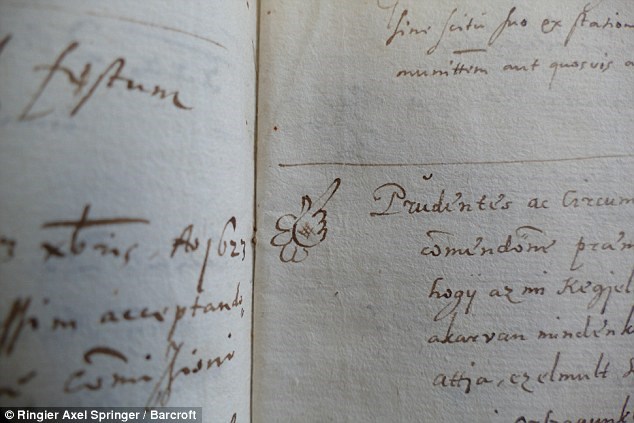 fęstum
xbris, Ao 1623
ssim acceptando,
com̄issioni
sine scitu suo ex station
aut quosvis a
Prudentes ac Circum
com̄endōne præm
hogÿ az mi Kegjel
akarvan mindenk
attja, ez elmult
© Ringier Axel Springer / Barcroft